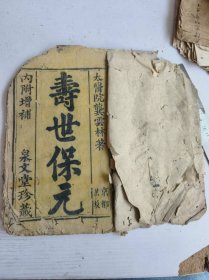 太醫院龔雲林著
京都
壽世保元
內附增補
泉文堂珍藏